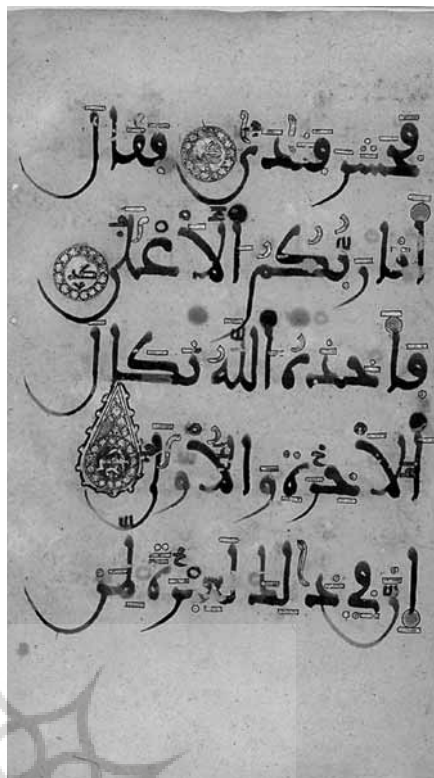 فحشر فنادى فقال
أنا ربكم الأعلى
فأخذه الله نكال
الأخرة والأولى
إن في ذلك لعبرة لمن